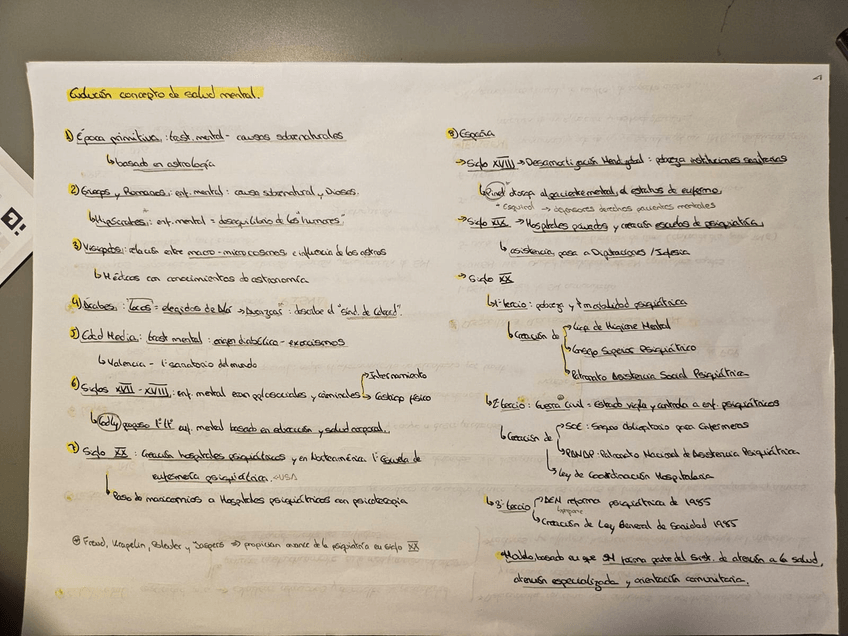 Evolución concepto de salud mental.
1) Época primitiva: trast. mental - causas sobrenaturales
↳ basado en astrología
2) Griegos y Romanos: enf. mental: causa sobrenatural y Dioses.
↳ Hipócrates: enf. mental = desequilibrio de los "humores"
3) Visigodos: relación entre macro-microcosmos e influencia de los astros
↳ Médicos con conocimientos de astronomía
4) Árabes: "locos" = elegidos de Alá → : describe el "sínd. de".
5) Edad Media: trast mental: origen diabólico - exorcismos
↳ Valencia - 1º sanatorio del mundo
6) Siglos XVII - XVIII: enf. mental eran peligrosos sociales y criminales → Internamiento
→ Castigo físico
↳ propuso 1º tto enf. mental basado en educación y salud corporal.
7) Siglo XX: Creación hospitales psiquiátricos y en Norteamérica 1º Escuela de
enfermería psiquiátrica. → USA
↳ Paso de manicomios a Hospitales psiquiátricos con psicoterapia
Freud, Kraepelin, Bleuler y Jaspers ⇒ propician avance de la psiquiatría en siglo XX
1
8) España
→ Siglo XVIII → Desamortización Mendizábal: pobreza instituciones sanitarias
↳ Pinel otorga al paciente mental, el estatus de enfermo
* Esquirol → defensores derechos pacientes mentales
→ Siglo XIX → Hospitales privados y creación escuelas de psiquiatría.
↳ asistencia pasa a Diputaciones / Iglesia
→ Siglo XX
↳ 1º tercio: pobreza y ↑ mortalidad psiquiátrica
↳ Creación de → Liga de Higiene Mental
→ Consejo Superior Psiquiátrico
→ Patronato Asistencia Social Psiquiátrica
↳ 2º tercio: Guerra Civil = Estado vigila y controla a enf. psiquiátricos
↳ Creación de → SOE: Seguro obligatorio para Enfermeros
→ PANAP: Patronato Nacional de Asistencia Psiquiátrica
→ Ley de Coordinación Hospitalaria
↳ 3º tercio → reforma psiquiátrica de 1985
→ Creación de Ley General de Sanidad 1985
* Modelo basado en que SM forma parte del Sist. de atención a la salud,
atención especializada y orientación comunitaria.